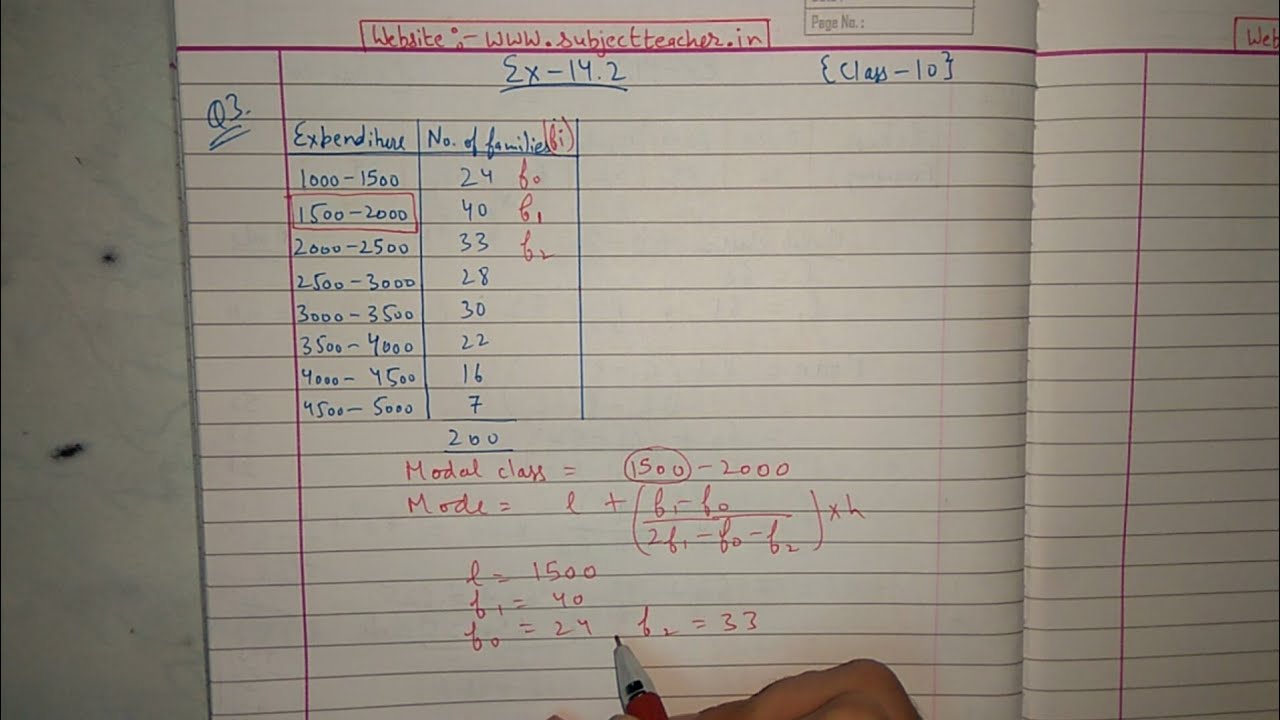 Page No.:
Website:- www.subjectteacher.in
Ex-14.2 {Class-10}
Q3.
Expenditure No. of families (fi)
1000-1500 24 f₀
1500-2000 40 f₁
2000-2500 33 f₂
2500-3000 28
3000-3500 30
3500-4000 22
4000-4500 16
4500-5000 7
200
Modal class = 1500-2000
Mode = l + (f₁-f₀ / 2f₁-f₀-f₂) × h
l = 1500
f₁ = 40
f₀ = 24 f₂ = 33